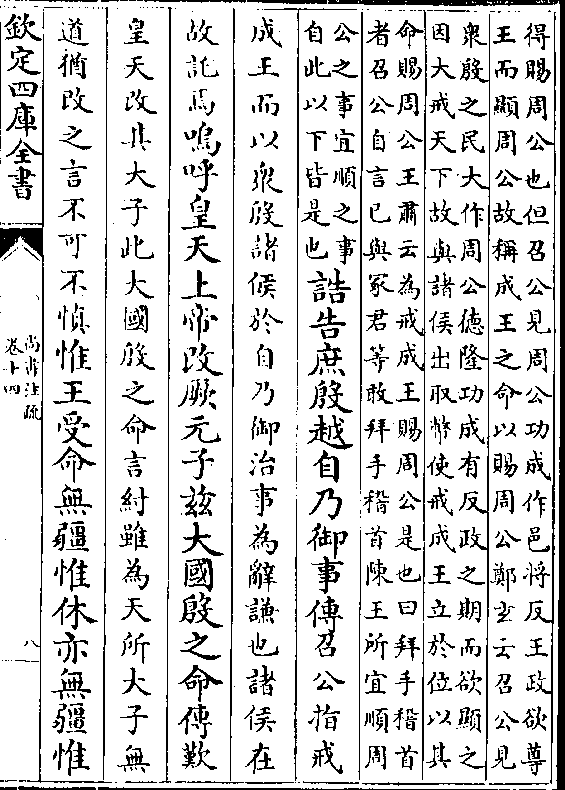 得賜周公也但召公見周公功成作邑将反王政欲尊
王而顯周公故稱成王之命以賜周公鄭玄云召公見
衆殷之民大作周公德隆功成有反政之期而欲顯之
因大戒天下故與諸侯出取幣使戒成王立於位以其
命賜周公王肅云為戒成王賜周公是也曰拜手稽首
者召公自言已與冢君等敢拜手稽首陳王所宜順周
公之事宜順之事
自此以下皆是也
誥告庶殷越自乃御事傳召公指戒
成王而以衆殷諸侯於自乃御治事為辭謙也諸侯在
故託焉嗚呼皇天上帝改厥元子兹大國殷之命傳歎
皇天改其大子此大國殷之命言紂雖為天所大子無
道猶改之言不可不慎惟王受命無疆惟休亦無疆惟
欽定四庫全書
尚書注疏
卷十四
八